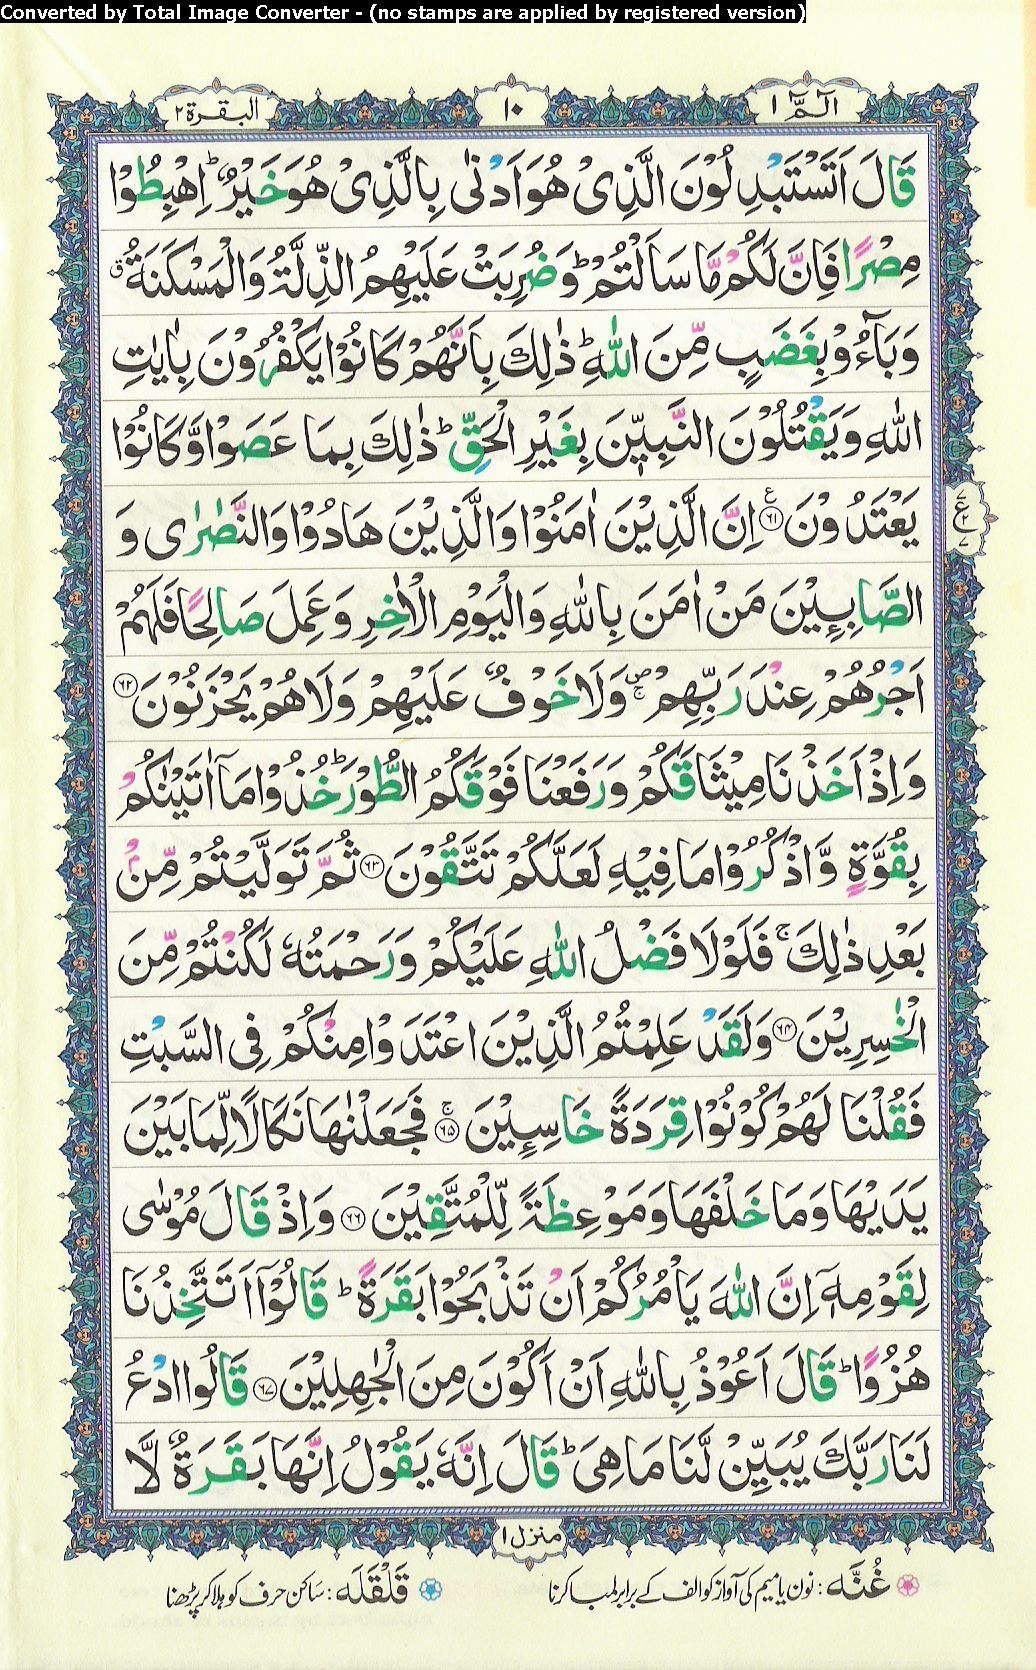 Converted by Total Image Converter - (no stamps are applied by registered version)
الٓمّٓ ١
١٠
البقرة ٢
قَالَ اَتَسْتَبْدِلُوْنَ الَّذِىْ هُوَ اَدْنٰى بِالَّذِىْ هُوَ خَيْرٌ ؕ اِهْبِطُوْا
مِصْرًا فَاِنَّ لَكُمْ مَّا سَاَلْتُمْ ؕ وَضُرِبَتْ عَلَيْهِمُ الذِّلَّةُ وَالْمَسْكَنَةُ ۗ
وَبَآءُوْ بِغَضَبٍ مِّنَ اللّٰهِ ؕ ذٰلِكَ بِاَنَّهُمْ كَانُوْا يَكْفُرُوْنَ بِاٰيٰتِ
اللّٰهِ وَيَقْتُلُوْنَ النَّبِيّٖنَ بِغَيْرِ الْحَقِّ ؕ ذٰلِكَ بِمَا عَصَوْا وَّكَانُوْا
يَعْتَدُوْنَ ۝۶۱ اِنَّ الَّذِيْنَ اٰمَنُوْا وَالَّذِيْنَ هَادُوْا وَالنَّصٰرٰى وَ
الصَّابِـِٕيْنَ مَنْ اٰمَنَ بِاللّٰهِ وَالْيَوْمِ الْاٰخِرِ وَعَمِلَ صَالِحًا فَلَهُمْ
اَجْرُهُمْ عِنْدَ رَبِّهِمْ ۪ۚ وَلَا خَوْفٌ عَلَيْهِمْ وَلَا هُمْ يَحْزَنُوْنَ ۝۶۲
وَاِذْ اَخَذْنَا مِيْثَاقَكُمْ وَرَفَعْنَا فَوْقَكُمُ الطُّوْرَ ؕ خُذُوْا مَآ اٰتَيْنٰكُمْ
بِقُوَّةٍ وَّاذْكُرُوْا مَا فِيْهِ لَعَلَّكُمْ تَتَّقُوْنَ ۝۶۳ ثُمَّ تَوَلَّيْتُمْ مِّنْۢ
بَعْدِ ذٰلِكَ ۚ فَلَوْلَا فَضْلُ اللّٰهِ عَلَيْكُمْ وَرَحْمَتُهٗ لَكُنْتُمْ مِّنَ
الْخٰسِرِيْنَ ۝۶۴ وَلَقَدْ عَلِمْتُمُ الَّذِيْنَ اعْتَدَوْا مِنْكُمْ فِى السَّبْتِ
فَقُلْنَا لَهُمْ كُوْنُوْا قِرَدَةً خَاسِـِٕيْنَ ۝۶۵ۚ فَجَعَلْنٰهَا نَكَالًا لِّمَا بَيْنَ
يَدَيْهَا وَمَا خَلْفَهَا وَمَوْعِظَةً لِّلْمُتَّقِيْنَ ۝۶۶ وَاِذْ قَالَ مُوْسٰى
لِقَوْمِهٖٓ اِنَّ اللّٰهَ يَاْمُرُكُمْ اَنْ تَذْبَحُوْا بَقَرَةً ؕ قَالُوْٓا اَتَتَّخِذُنَا
هُزُوًا ؕ قَالَ اَعُوْذُ بِاللّٰهِ اَنْ اَكُوْنَ مِنَ الْجٰهِلِيْنَ ۝۶۷ قَالُوا ادْعُ
لَنَا رَبَّكَ يُبَيِّنْ لَّنَا مَا هِىَ ؕ قَالَ اِنَّهٗ يَقُوْلُ اِنَّهَا بَقَرَةٌ لَّا
منزل ١
غُنَّه : نون یا میم کی آواز کو الف کے برابر لمبا کرنا
قَلْقَلَه : ساکن حرف کو ہلا کر پڑھنا